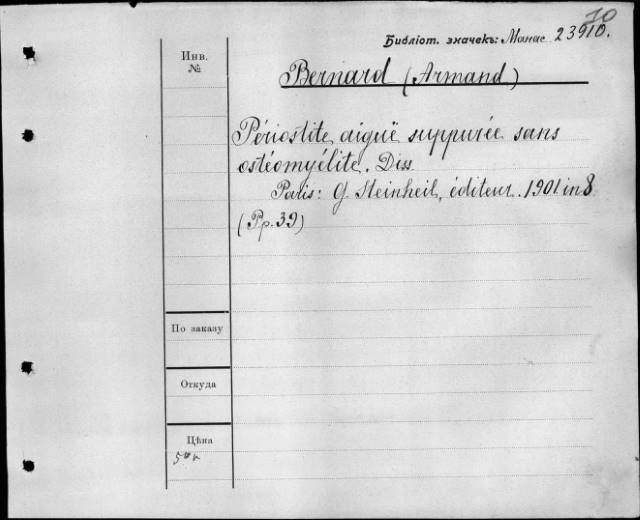 10
Библіот. значекъ: 23910.
Инв.
№
Bernard (Armand)
Périostite aiguë suppurée sans
ostéomyélite. Diss
Paris: G. Steinheil, éditeur. 1901 in 8
(Pp. 39)
По заказу
Откуда
Цѣна